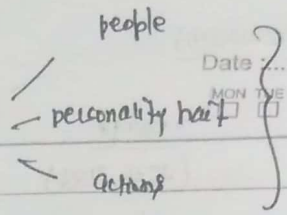 people
Date :...
MON TUE
personality trait
actions